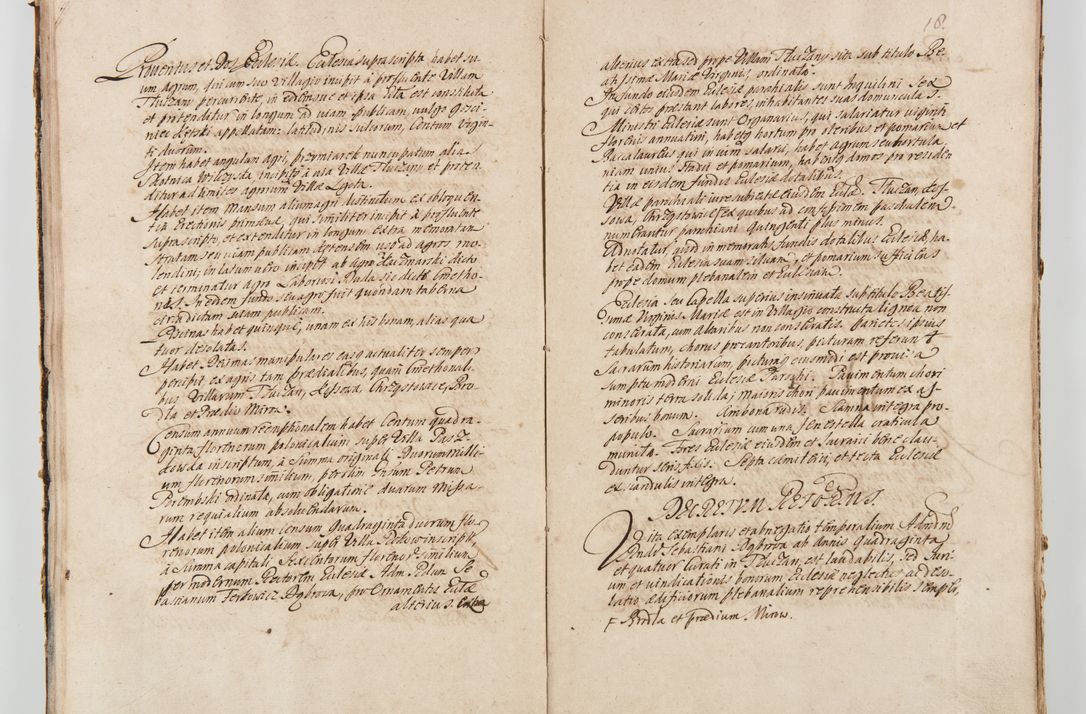 Proventus et Dos Ecclesiæ. Ecclesia suprascripta habet su
um agrum, qui cum suo villagio incipit à profluente villam
Tluczan percurrente, in
et protenditur in longum ad viam publicam, vulgo Gosci
niec dictam appellatam: latitudinis sulcorum, Centum vigin
ti duorum.
Item habet angulam agri, przymiarek nuncupatum alias
incipit à via Villæ Tluczan et proten
ditur ad limites agrorum Villæ Lgota.
Habet item Mansum alium agri distinctum ex obloquen
tia Erectionis primævæ, qui similiter incipit à profluente
suprascripto, et extenditur in longum extra memoratam
stratam seu viam publicam
lendini, in latum vero incipit ab agro dicto
et terminatur agro Laboriosi Duda sic dicti Cmetho
nis. In eodem fundo seu agro fuit quondam taberna
circa dictam viam publicam.
Decimas habet quinque, unam ex his bonam, alias qua
tuor desolatas.
Habet Decimas manipulares eas q actualiter semper
percipit ex agris tam prædialibus, quam Cmethonali
bus Villarum Tluczan, Lgssowa, Chrzpstowice, Bro
dla et Prædii Mirow.
Censum annuum reemptionalem habet Centum quadra
ginta florenorum polonicalium super Villa
inscriptum, à Summa originali Duorum milli
um florenorum similium, per olim
Porembski ordinatæ, cum obligatione duarum Missa
rum requialium absolvendarum.
Habet item alium Censum Quadraginta duorum flo
renorum polonicalium super Villa inscriptum
à Summa capitali, Sexcentorum florenor: similium
per modernum Rectorem Ecclesiæ Adm. Rdum Se
bastianum Ferkowicz Dybrowa, pro Ornamentis Eccłæ
alterius s. Extra
18.
alterius extra sed prope Villam Tluczany sita sub titulo Be
atissimæ Mariæ Virginis, ordinato.
In fundo eiusdem Ecclesiæ parochialis sunt Inquilini sex
qui certos præstant labores, inhabitantes suas domunculas.
Ministri Ecclesiæ sunt Organarius, qui salariatur viginti
florenis annuatim, habetq hortum pro oleribus et pomarium et
Baccalaureus qui in vim salarii, habet agrum seu hortula
niam unius stadii et pomarium, habentq domos pro residen
tia in eisdem fundis Ecclesiæ dotalibus.
Villæ parochiali iure subiectæ eiusdem Eccłæ. Tluczan, Lgs
sowa, Chrzpstowice ғ ex quibus ad confessionem paschalem
numerantur parochiani quingenti plus minus.
Adnotatur, quod in memoratis fundis dotalibus Ecclesiæ, ha
bet eadem Ecclesia suam et pomarium sufficiens
prope domum plebanalem et Ecclesiam.
Ecclesia seu Capella superius insinuata sub titulo Beatis
simæ Virginis Mariæ est in Villagio constructa lignea non
consecrata, cum altaribus non consecratis. Parietes ipsius
tabulatum, chorus pro cantoribus, picturam referunt
Sacrarum historiarum, pictura eiusmodi est provisa
sumptu moderni Ecclesiæ Parochi. Pavimentum chori
minoris terra solida; maioris chori pavimentum ex as
seribus bonum. Ambona rudis. Scamna integra pro
populo. Sacrarium cum una fenestella craticula
munita. Fores Ecclesiæ eiusdem et Sacrarii bene clau
duntur seris ferreis. Septa cœmiterii, et tecta Ecclesiæ
ex scandulis integra.
DECRETUM REFORMIS
Uti ita exemplaris et abnegatio temporalium Admdi
Rndi Sebastiani Dybrowa ab annis quadraginta
et quatuor Curati in Tluczan, est laudabilis, ita Iuri
um et vindicationis bonorum Ecclesiæ neglectus ac deso
latio ædificiorum plebanalium reprehensibilis semper,
ғ Brodla et prædium Mirow.